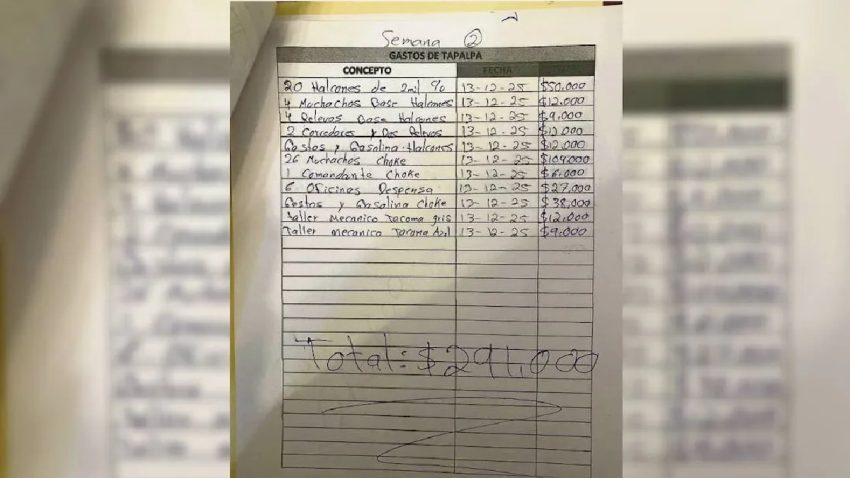 Semana 2
GASTOS DE TAPALPA
CONCEPTO FECHA
20 Halcones de 2mil % 13-12-25 $50.000
4 Muchachos Base Halcones 13-12-25 $12.000
4 Relevos Base Halcones 13-12-25 $9.000
2 Corredores y Dos Relevos 13-12-25 $12.000
Gastos y Gasolina-Halcones 13-12-25 $12.000
26 Muchachos Choke 13-12-25 $104.000
1 Comandante Choke 13-12-25 $6.000
6 Oficinas Despensa 13-12-25 $27,000
Gastos y Gasolina Choke 13-12-25 $38,000
Taller Mecanico Tacoma gris 13-12-25 $12,000
Taller mecanico Tacoma Azul 13-12-25 $9.000
Total: $291,000